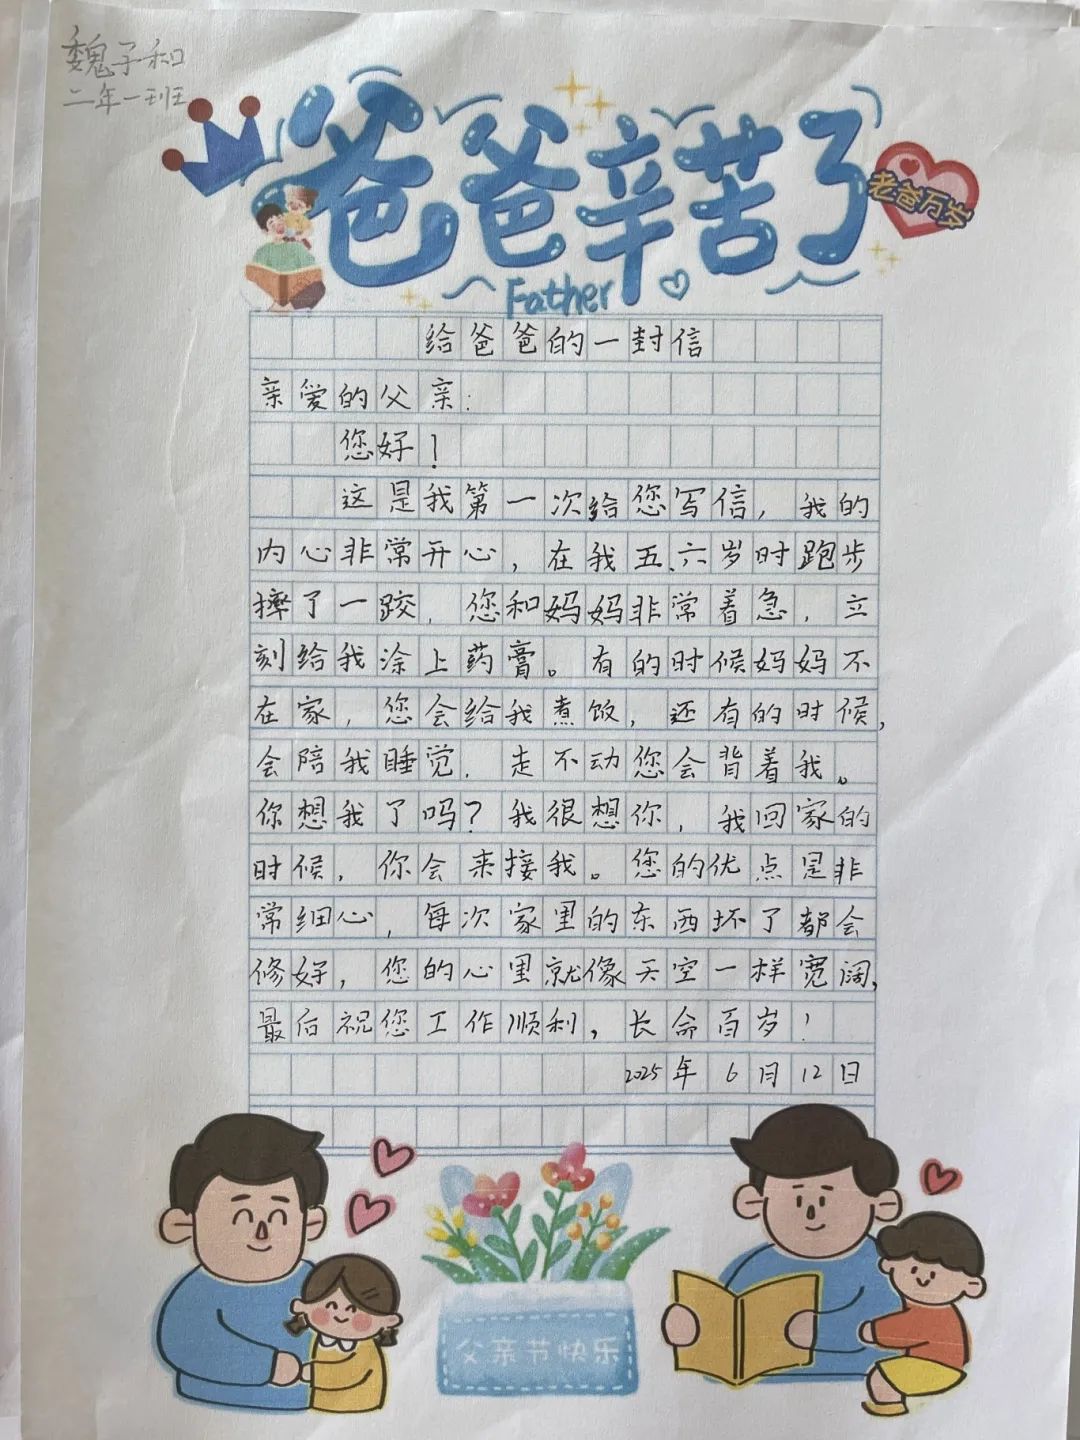 魏子和
二年一班
爸爸辛苦了
老爸万岁
Father
给爸爸的一封信
亲爱的父亲:
您好!
这是我第一次给您写信,我的
内心非常开心,在我五、六岁时跑步
摔了一跤,您和妈妈非常着急,立
刻给我涂上药膏。有的时候妈妈不
在家,您会给我煮饭,还有的时候,
会陪我睡觉,走不动您会背着我。
你想我了吗?我很想你,我回家的
时候,你会来接我。您的优点是非
常细心,每次家里的东西坏了都会
修好,您的心里就像天空一样宽阔,
最后祝您工作顺利,长命百岁!
2025年6月12日
父亲节快乐